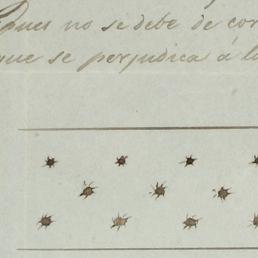 pues no se debe de cor
que se perjudica á la